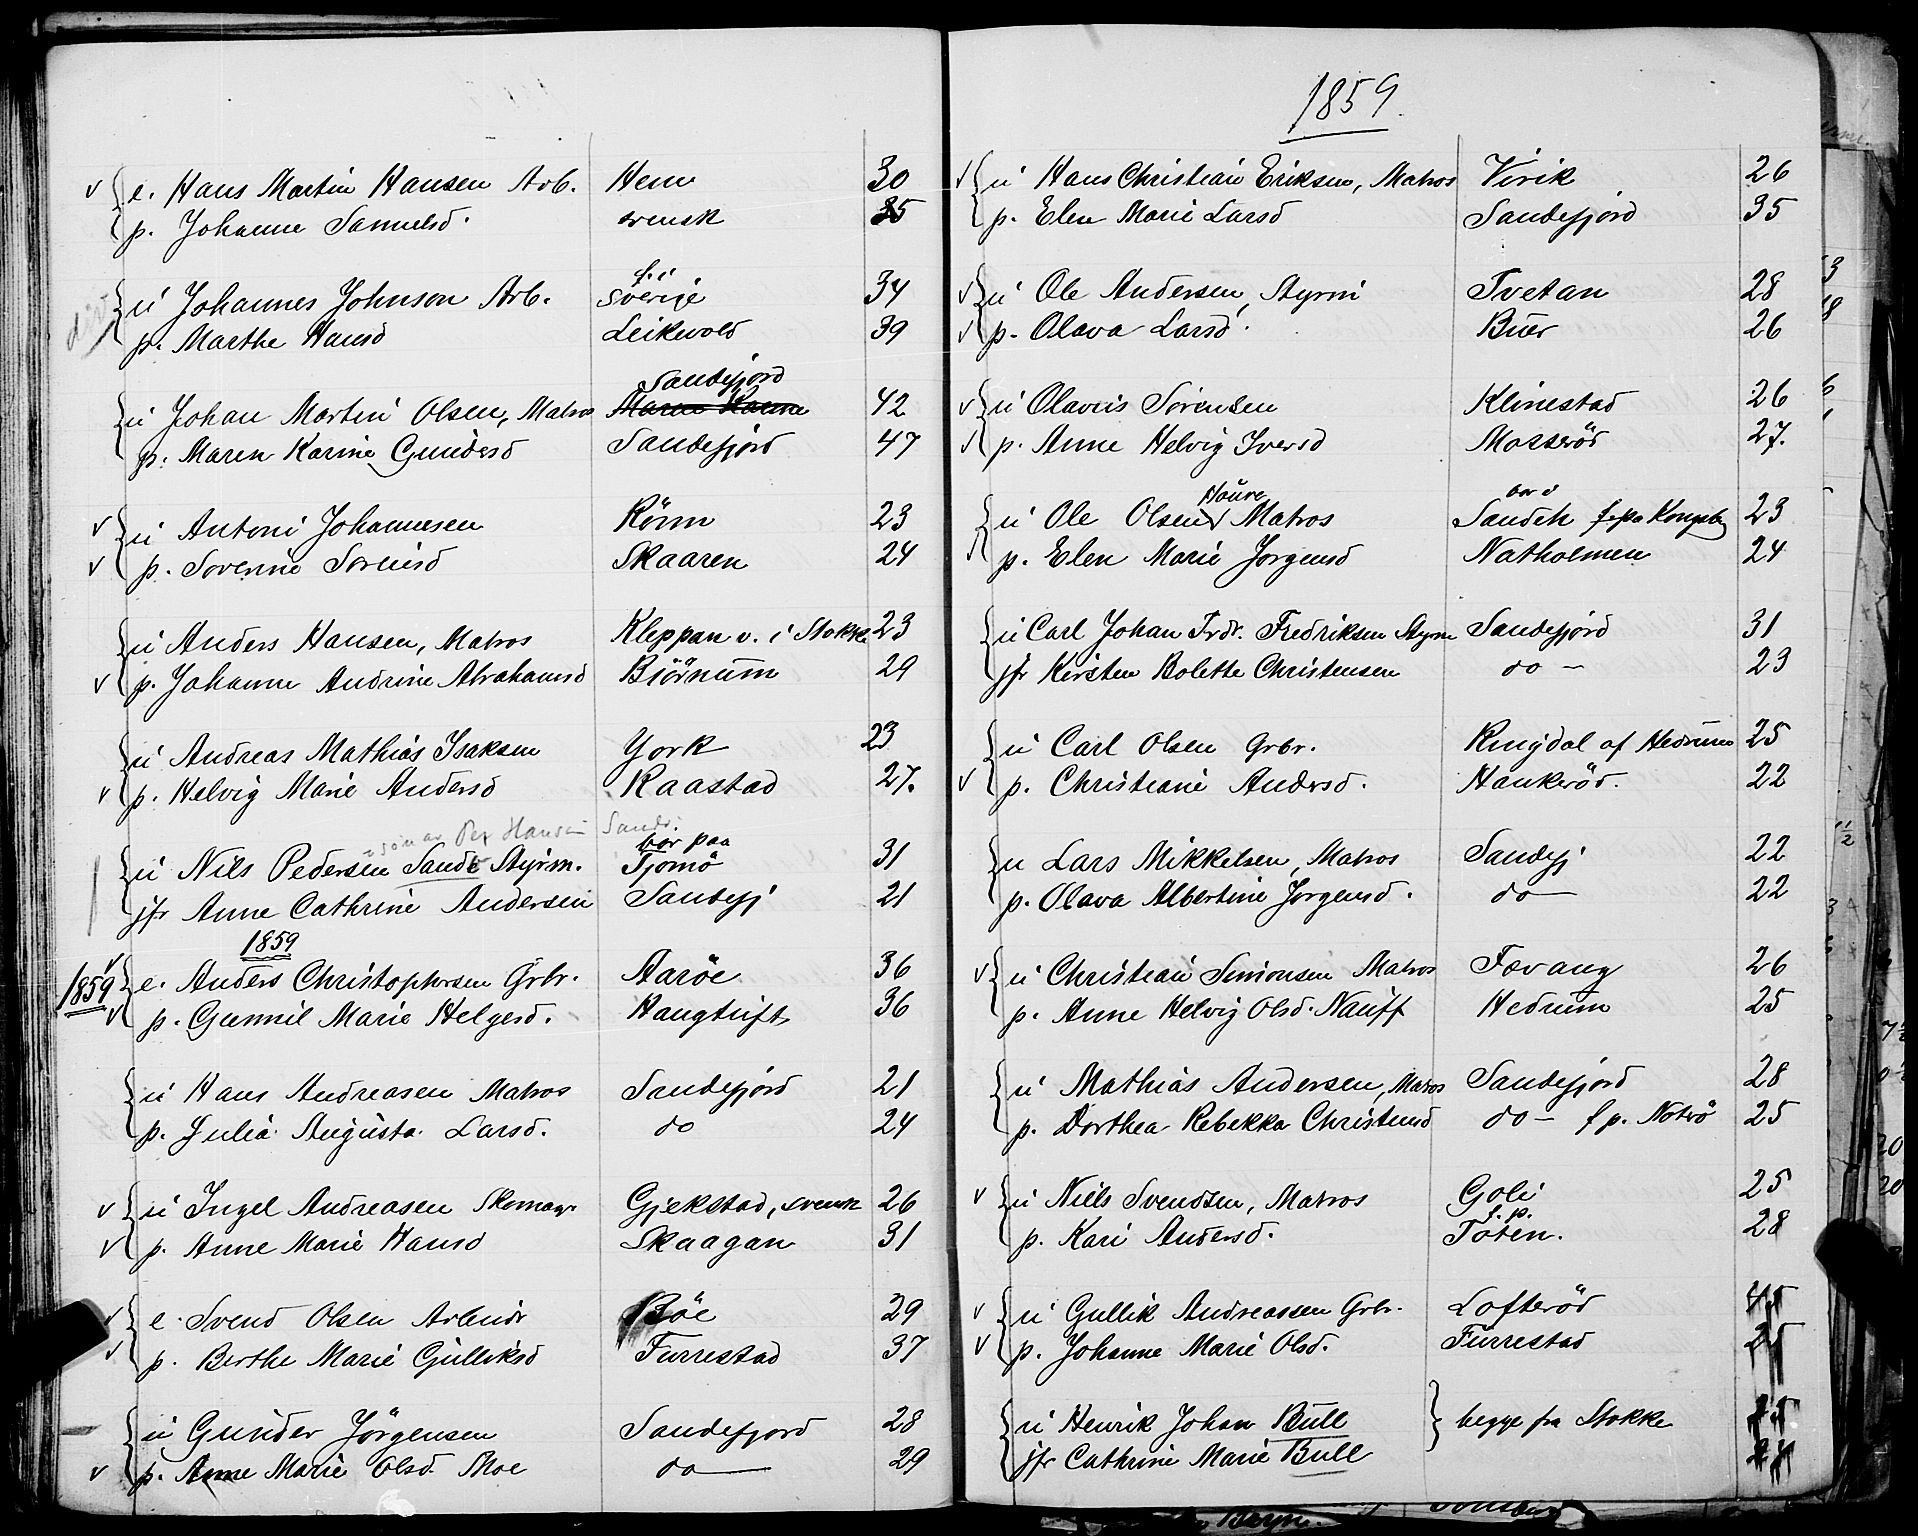 e. Hans Martin Hansen Arb. Hem 30
p. Johanne Samuelsd. svensk 35
f. i
u Johannes Johnson Arb. Sverige 34
p. Marthe Hansd Leikvold 39
Sandefjord
u Johan Martin Olsen, Matros 42
p. Maren Karine Gundersd Sandefjord 47
u Antoni Johannesen Rönn 23
p. Soverine Sorensd Skaaren 24
u Anders Hansen, Matros Kleppan v. i Stokke 23
p. Johanne Andrine Abrahamsd Biörnum 29
u Andreas Mathias Isaksen York 23
p. Helvig Marie Andersd Raastad 27.
sön av Per Hansen Sande.
bor paa
u Nils Pedersen Sande Styrm. Tjomö 31
jfr Anne Cathrine Andersen Sandefj 21
1859
1859 e. Anders Christophersen Grbr. Aaröe 36
p. Gunnil Marie Helgesd. Haugtuft 36
u Hans Andreasen Matros Sandefjord 21
p. Julia Augusta Larsd. do 24
u Ingel Andreasen Skomagr Gjekstad, svensk 26
p. Anne Marie Hansd Skaagan 31
e. Svend Olsen Arbeidr Böe 29
p. Berthe Marie Gulliksd Furrestad 37
u Gunder Jörgensen Sandefjord 28
p. Anne Marie Olsd. Moe do 29
1859.
u Hans Christian Eriksen, Matros Virik 26
p. Elen Marie Larsd Sandefjord 35
u Ole Andersen, Styrm Tvetan 28
p. Olava Larsd. Buer 26
u Olavus Sörensen Klinestad 26
p. Anne Helvig Iversd Moseröd 27.
Houre bor i
u Ole Olsen Matros Sandeh f. pa Kongsbg 23
p. Elen Marie Jorgensd Natholmen 24
u Carl Johan Frdr. Fredriksen Styrm Sandefjord 31
jfr Kirsten Bolette Christensen do - 23
u Carl Olsen Grbr. Ringdal af Hedrum 25
p. Christiane Andersd. Haukeröd. 22
u Lars Mikkelsen, Matros Sandefj 22
p. Olava Albertine Jorgensd. do 22
u Christian Simonsen Matros Fævang 26
p. Anne Helvig Olsd. Nauff Hedrum 25
u Mathias Andersen, Matros Sandefjord 28
p. Dorthea Rebekka Christensd do - f p. Noterö 25
u Niels Svendsen, Matros Goli 25
f. p.
p. Kari Andersd. Toten. 28
u Gullik Andreassen Grbr. Lofteröd 45
p. Johanne Marie Olsd. Furrestad 25
u Henrik Johan Bull begge fra Stokke
jfr Cathrine Marie Bull